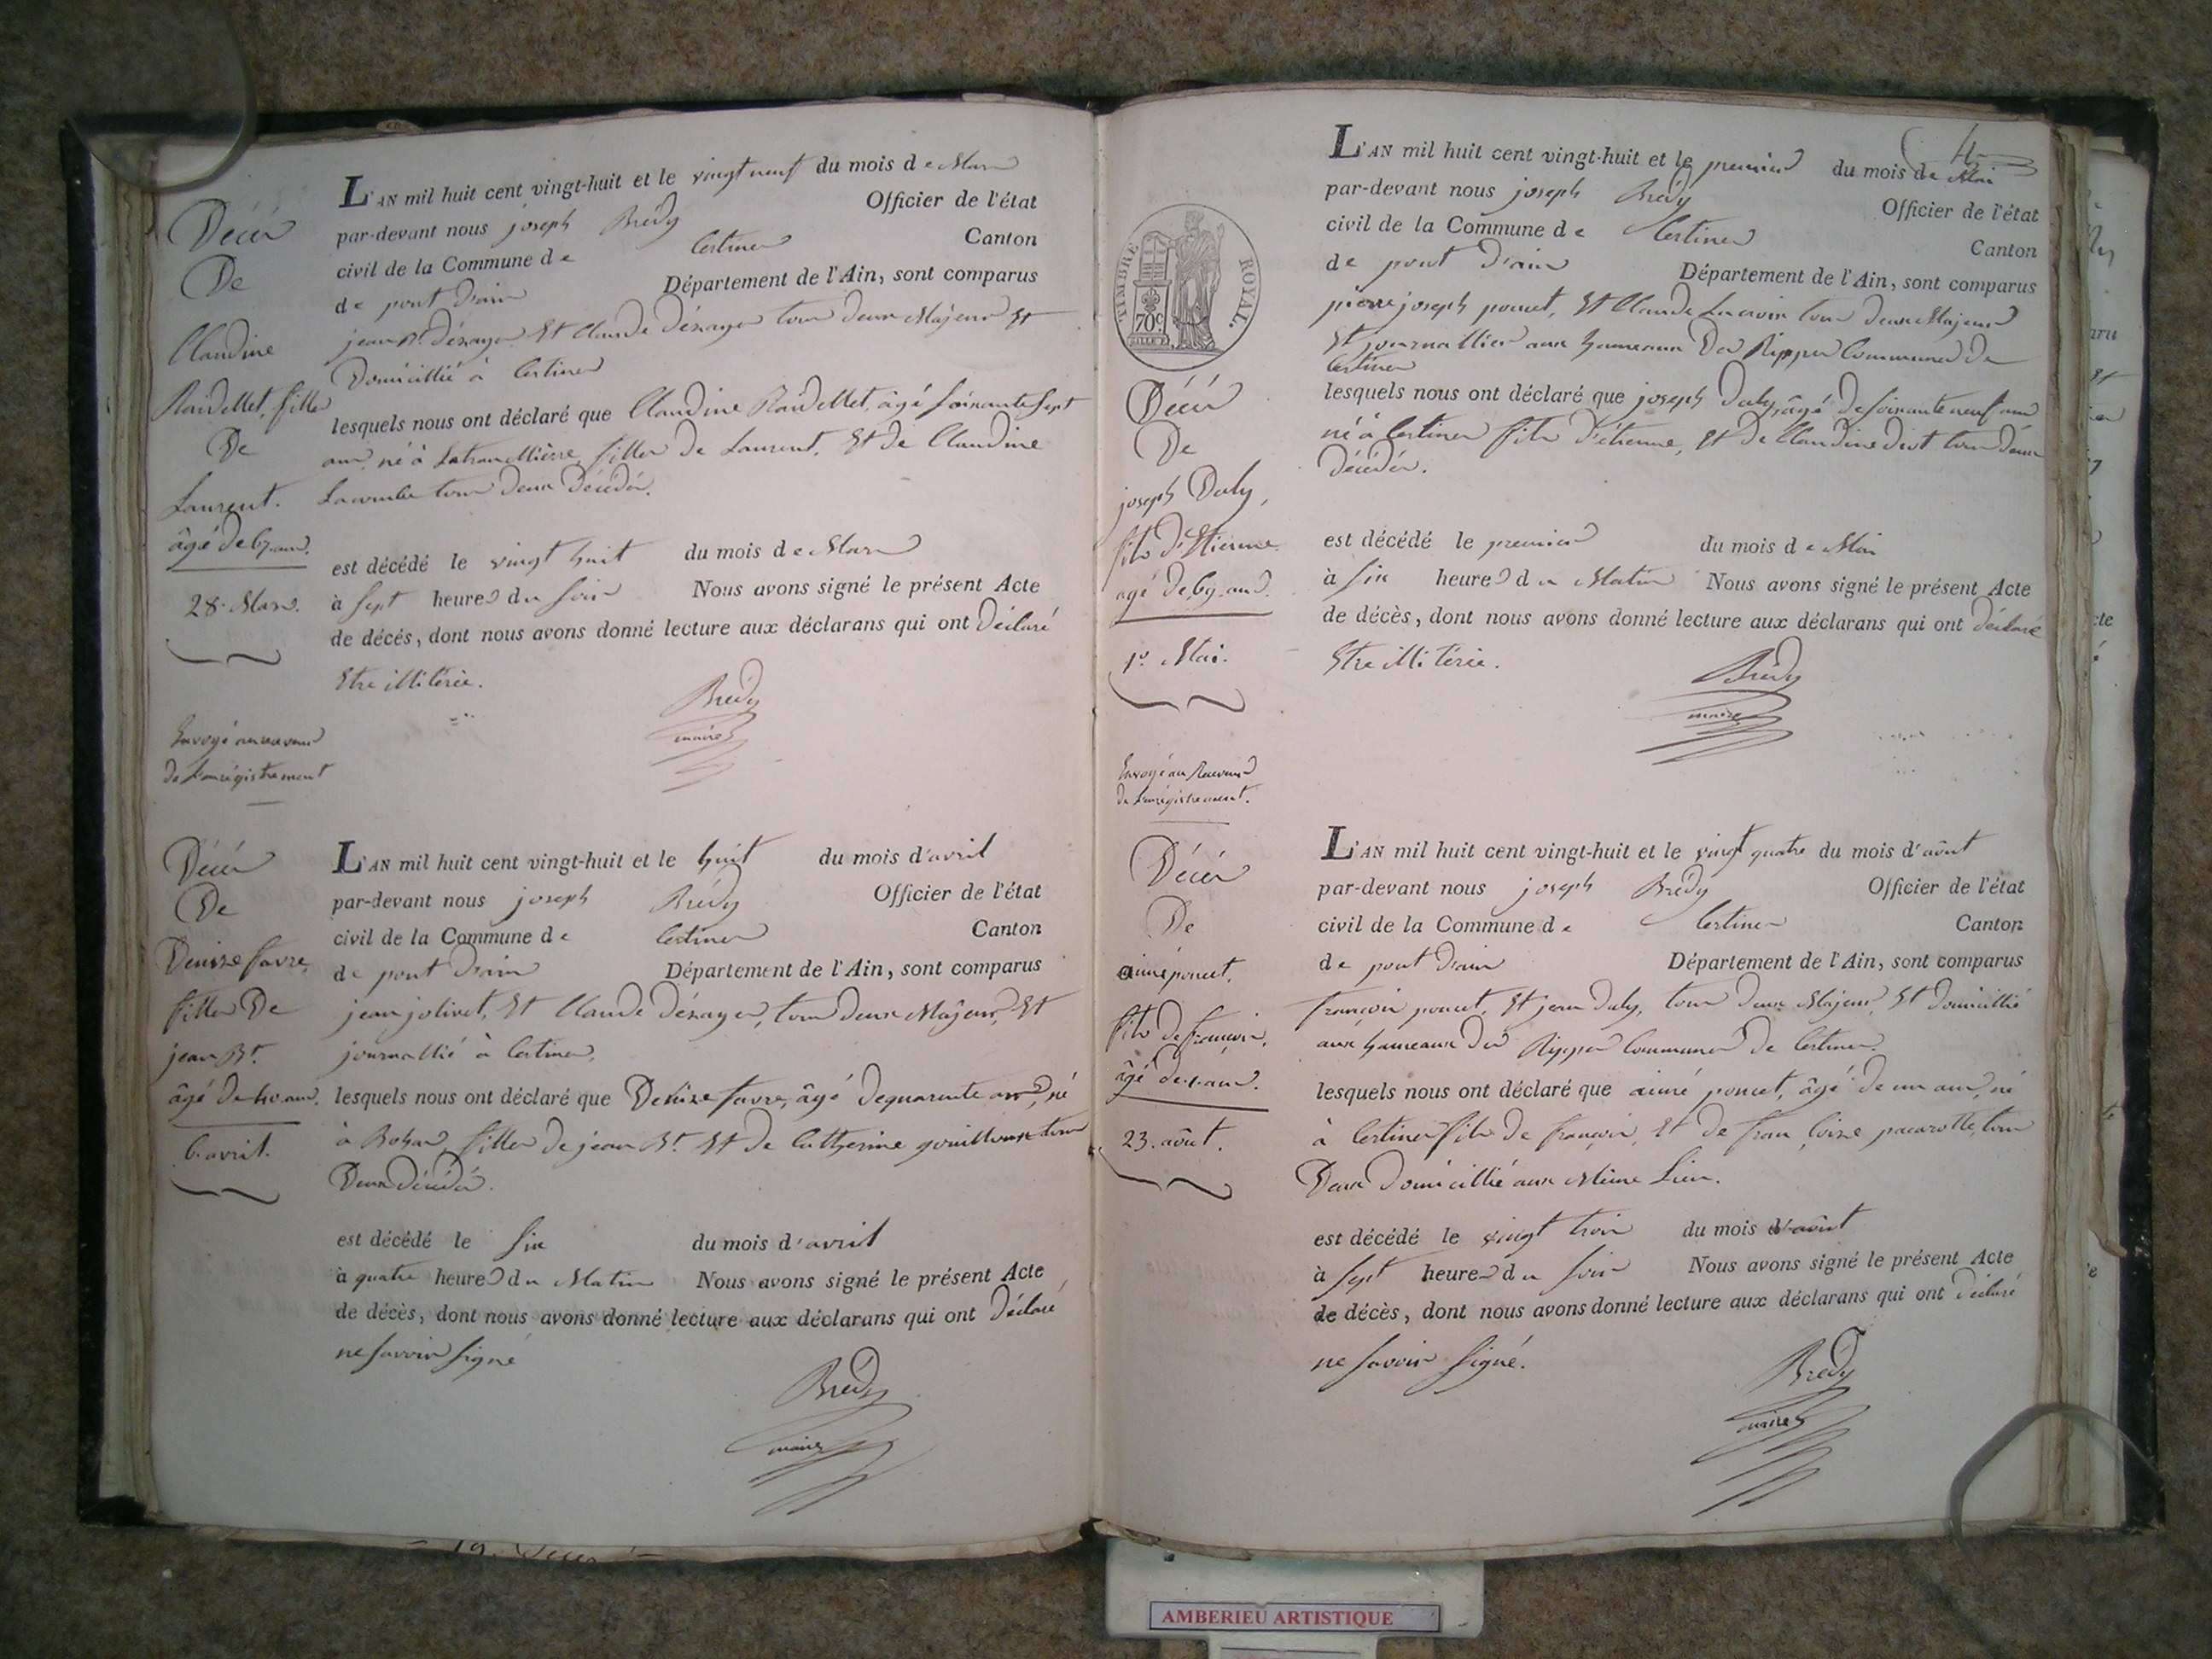 Décès
De
Claudine
Raudellet, fille
De
Laurent.
âgé de 67 ans.
28. Mars.
Envoyé au receveur
de L'enrégistrement
L'AN mil huit cent vingt-huit et le vingt neuf du mois de Mars
par-devant nous joseph Brédy Officier de l'état
civil de la Commune de Certines Canton
de pont D'ain Département de l'Ain, sont comparus
jean Bt. Désayer Et Claude Désayer tous Deux Majeurs Et
Domicillié à Certines
lesquels nous ont déclaré que Claudine Raudellet, âgé soixante sept
ans, né à Latranclière, filles de Laurent, Et de Claudine
Lacombe tous Deux Décédés.
est décédé le vingt huit du mois de Mars
à sept heures du soir Nous avons signé le présent Acte
de décés, dont nous avons donné lecture aux déclarans qui ont Déclaré
Etre illitérée.
Brédy
maire
Décès
De
Denise favre,
filles De
jean Bt.
âgé De 40 ans.
6. avril.
L'AN mil huit cent vingt-huit et le huit du mois d'avril
par-devant nous joseph Brédy Officier de l'état
civil de la Commune de Certines Canton
de pont D'ain Département de l'Ain, sont comparus
jean jolivet, Et Claude Désayer, tous Deux Majeurs, Et
journallié à Certines,
lesquels nous ont déclaré que Denise favre, âgé de quarente ans, né
à Bohas, filles de jean Bt. Et de Catherine tous
Deux Décédés.
est décédé le six du mois d'avril
à quatre heures du Matin Nous avons signé le présent Acte
de décès, dont nous avons donné lecture aux déclarans qui ont Déclaré
ne savoir signé
Brédy
maire
4
TIMBRE ROYAL.
70 c
Décès
De
joseph Daly,
fils d'Etienne
agé de 69. ans.
1er. Mai.
Envoyé au Receveur
de L'enrégistrement.
L'AN mil huit cent vingt-huit et le premier du mois de Mai
par-devant nous joseph Brédy Officier de l'état
civil de la Commune de Certines Canton
de pont D'ain Département de l'Ain, sont comparus
pierre joseph poncet, Et Claude Lacroix tous Deux Majeurs
Et journallier aux hameaux Des Rippes Communes De
Certines
lesquels nous ont déclaré que joseph Daly, âgé de soixante neuf ans
né à Certines fils D'étienne, Et De Claudine tous Deux
Décédés.
est décédé le premier du mois de Mai
à six heures du Matin Nous avons signé le présent Acte
de décès, dont nous avons donné lecture aux déclarans qui ont déclaré
Etre illitérée.
Brédy
maire
Décès
De
aimé poncet.
fils de françois,
âgé de 1. ans.
23. aôut.
L'AN mil huit cent vingt-huit et le vingt quatre du mois d'aôut
par-devant nous joseph Brédy Officier de l'état
civil de la Commune de Certines Canton
de pont D'ain Département de l'Ain, sont comparus
françois poncet, Et jean Daly, tous Deux Majeurs, Et Domicillié
aux hameaux Des Rippes Communes De Certines.
lesquels nous ont déclaré que aimé poncet, âgé de un ans, né
à Certines fils De françois, Et de françoise tous
Deux Domicillié aux Même Lieu.
est décédé le vingt trois du mois d'aôut
à sept heures du soir Nous avons signé le présent Acte
de décès, dont nous avons donné lecture aux déclarans qui ont déclaré
ne savoir signé.
Brédy
maire
AMBERIEU ARTISTIQUE